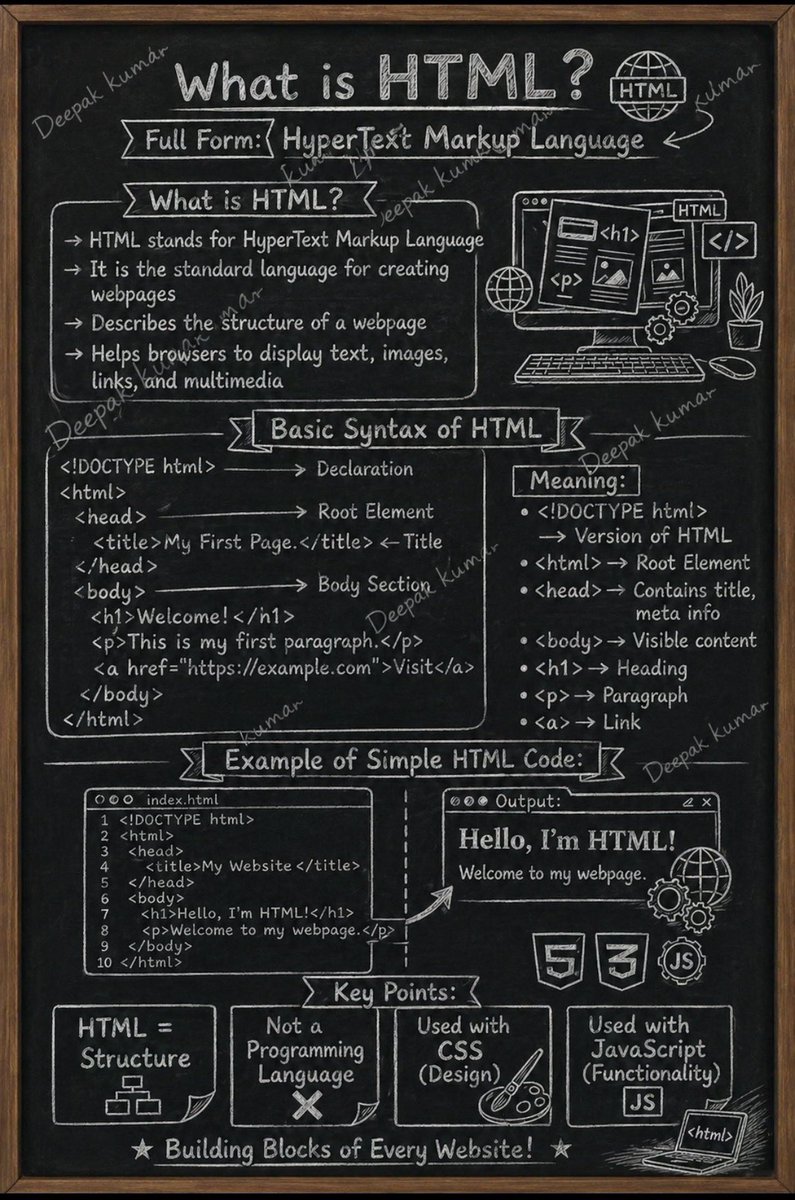 What is HTML?
HTML
Full Form: HyperText Markup Language
What is HTML?
→ HTML stands for HyperText Markup Language
→ It is the standard language for creating
webpages
→ Describes the structure of a webpage
→ Helps browsers to display text, images,
links, and multimedia
HTML
<h1>
</>
<p>
Basic Syntax of HTML
<!DOCTYPE html> → Declaration
<html>
<head> → Root Element
<title>My First Page.</title> ← Title
</head>
<body> → Body Section
<h1>Welcome! </h1>
<p>This is my first paragraph.</p>
<a href="https://example.com">Visit</a>
</body>
</html>
Meaning:
• <!DOCTYPE html>
→ Version of HTML
• <html> → Root Element
• <head> → Contains title,
meta info
• <body> → Visible content
• <h1> → Heading
• <p> → Paragraph
• <a> → Link
Example of Simple HTML Code:
index.html
1 <!DOCTYPE html>
2 <html>
3 <head>
4 <title>My Website </title>
5 </head>
6 <body>
7 <h1>Hello, I'm HTML!</h1>
8 <p>Welcome to my webpage.</p>
9 </body>
10 </html>
Output:
Hello, I'm HTML!
Welcome to my webpage.
5
3
JS
Key Points:
HTML =
Structure
Not a
Programming
Language
Used with
CSS
(Design)
Used with
JavaScript
(Functionality)
JS
★ Building Blocks of Every Website! ★
<html>
Deepak kumar
kumar
Deepak kumar
Deepak kumar
Deepak kumar
Deepak kumar
kumar
Deepak kumar